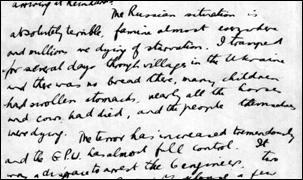 arriving at
The Russian situation is
absolutely terrible, famine almost everywhere
and millions are dying of starvation. I tramped
for several days through villages in the Ukraine
and there was no bread there, many children
had swollen stomachs, nearly all the horses
and cows had died, and the people themselves
were dying. The terror has increased tremendously
and the G.P.U. has almost full control. It
was a disgrace to arrest the 6 engineers, two
a few